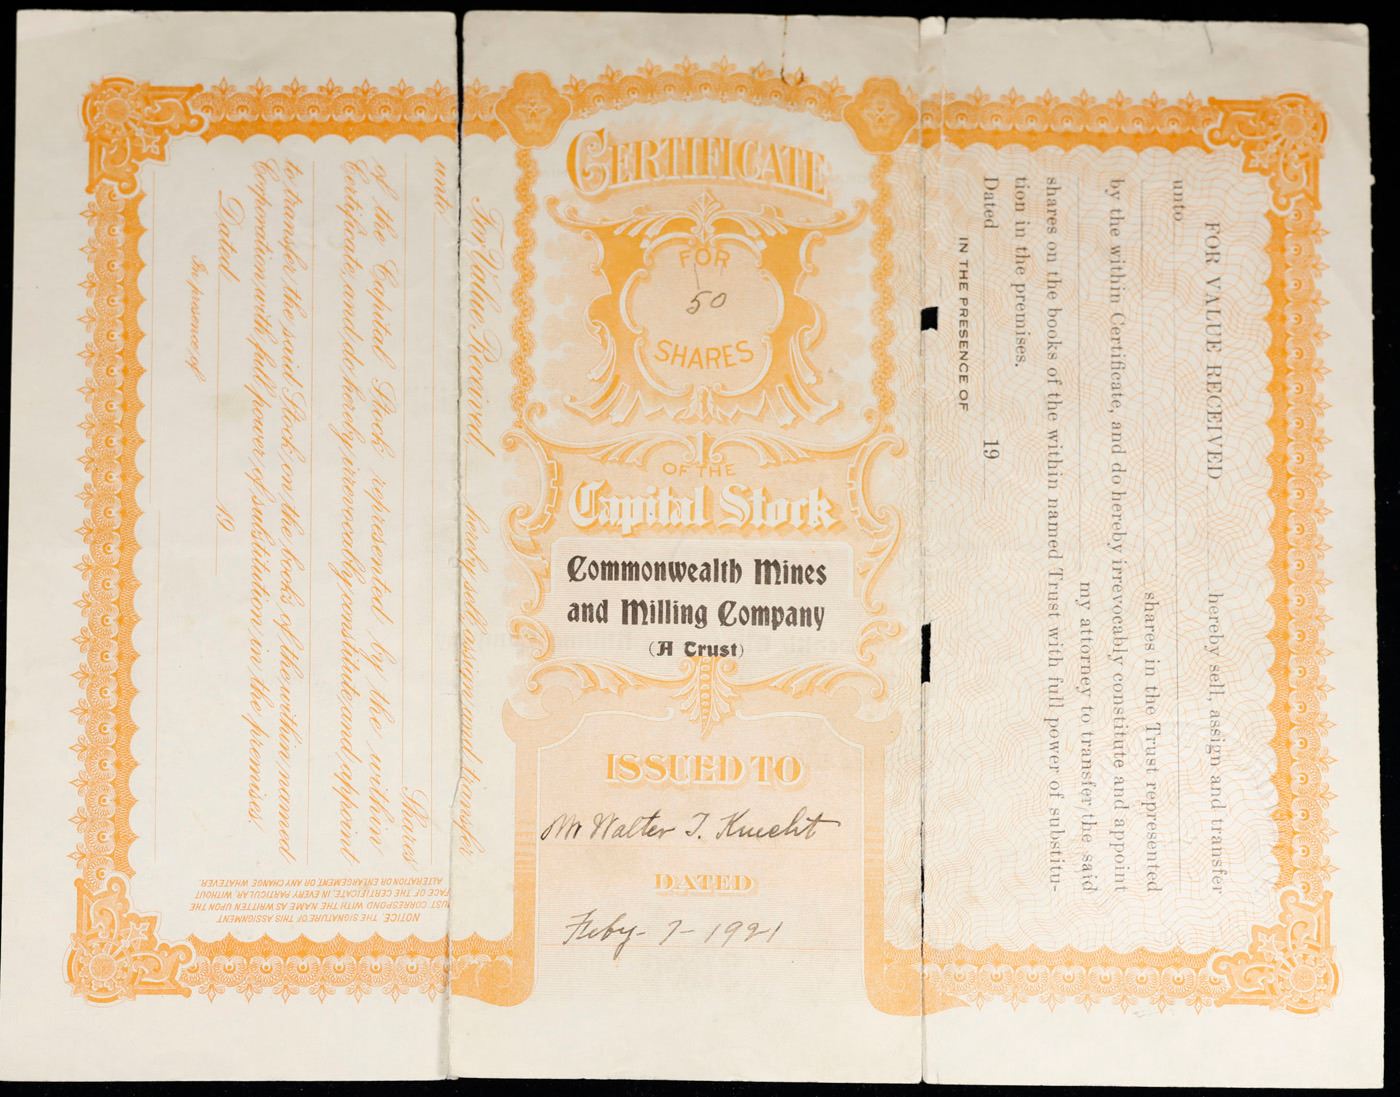 CERTIFICATE
FOR
50
SHARES
OF THE
Capital Stock
Commonwealth Mines
and Milling Company
(A Trust)
ISSUED TO
Mr Walter T. Knecht
DATED
Feby- 7- 1921
For Value Received, hereby sell, assign and transfer
unto
Shares
of the Capital Stock represented by the within
Certificate, and do hereby irrevocably constitute and appoint
to transfer the said Stock on the books of the within named
Corporation with full power of substitution in the premises.
Dated 19
In presence of
NOTICE. THE SIGNATURE OF THIS ASSIGNMENT
MUST CORRESPOND WITH THE NAME AS WRITTEN UPON THE
FACE OF THE CERTIFICATE, IN EVERY PARTICULAR, WITHOUT
ALTERATION OR ENLARGEMENT, OR ANY CHANGE WHATEVER.
FOR VALUE RECEIVED hereby sell, assign and transfer
unto
shares in the Trust represented
by the within Certificate, and do hereby irrevocably constitute and appoint
my attorney to transfer the said
shares on the books of the within named Trust with full power of substitu-
tion in the premises.
Dated 19
IN THE PRESENCE OF